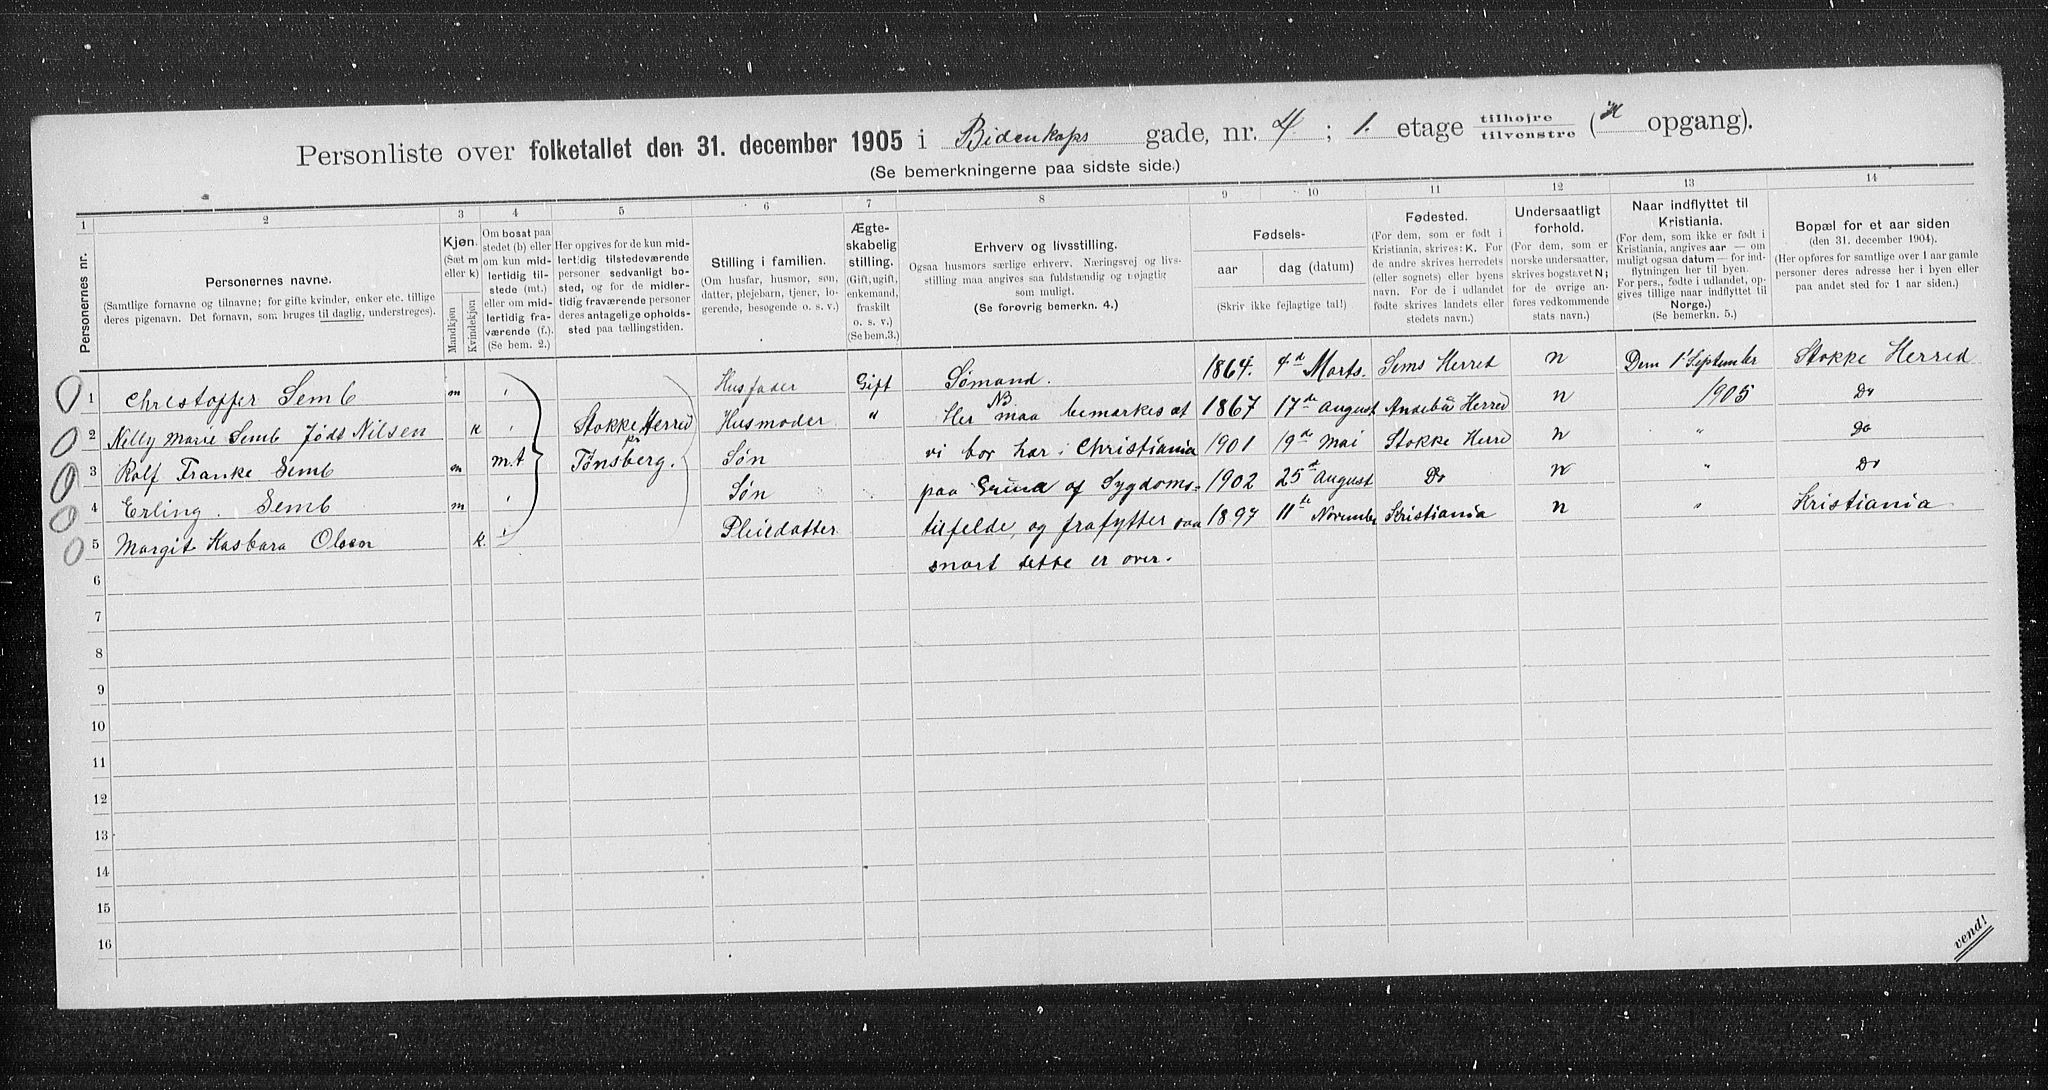 Personliste over folketallet den 31. december 1905 i Bidenkaps gade, nr. 4. ; 1. etage tilhøjre / tilvenstre ( opgang).
(Se bemerkningerne paa sidste side.)
1 2 3 4 5 6 7 8 9 10 11 12 13 14
Personernes nr.
Personernes navne.
(Samtlige fornavne og tilnavne; for gifte kvinder, enker etc. tillige deres pigenavn. Det fornavn, som bruges til daglig, understreges).
Kjøn. (Sæt m eller k) Mandkjøn Kvindekjøn
Om bosat paa stedet (b) eller om kun midlertidig tilstede (mt.) eller om midlertidig fraværende (f.). (Se bem. 2.)
Her opgives for de kun midlertidig tilstedeværende personer sedvanligt bosted, og for de midlertidig fraværende personer deres antagelige opholdssted paa tællingstiden.
Stilling i familien.
(Om husfar, husmor, søn, datter, plejebarn, tjener, logerende, besøgende o. s. v.)
Ægteskabelig stilling. (Gift, ugift, enkemand, fraskilt o. s. v.) (Se bem. 3.)
Erhverv og livsstilling.
Ogsaa husmors særlige erhverv. Næringsvej og livsstilling maa angives saa fuldstændig og nøjagtig som muligt.
(Se forøvrig bemerkn. 4.)
Fødsels-
aar dag (datum)
(Skriv ikke fejlagtige tal!)
Fødested.
(For dem, som er født i Kristiania, skrives: K. For de andre skrives herredets (eller sognets) eller byens navn. For de i udlandet fødte skrives landets eller stedets navn.)
Undersaatligt forhold.
(For dem, som er norske undersaatter, skrives bogstavet N; for de øvrige anføres vedkommende stats navn.)
Naar indflyttet til Kristiania.
(For dem, som ikke er født i Kristiania, angives aar — om muligt ogsaa datum — for indflytningen her til byen. For pers., fødte i udlandet, opgives tillige naar indflyttet til Norge.)
(Se bemerkn. 5.)
Bopæl for et aar siden
(den 31. december 1904).
(Her opføres for samtlige over 1 aar gamle personer deres adresse her i byen eller paa andet sted for 1 aar siden.)
1 Christoffer Semb m Husfader Gift Sømand. 1864. 4de Marts. Sems Herred n Dem 1' September 1905 Stokke Herred
2 Nelly Marie Semb Født Nilsen k Stokke Herred Husmoder " NB Her maa bemærkes at 1867 17de August Andebu Herred n Do
3 Rolf Franke Semb m m.t pr Tønsberg. Søn vi bor her i Christiania 1901 19de Mai Stokke Herred n " Do
4 Erling. Semb m Søn paa Grund af Sygdoms- 1902 25de August Do n " Do
5 Margit Kasbara Olsen k. Pleiedatter tilfelde, og frafytter saa 1897 11te November Kristiania n " Kristiania
snart dette er over.
6
7
8
9
10
11
12
13
14
15
16
vend!